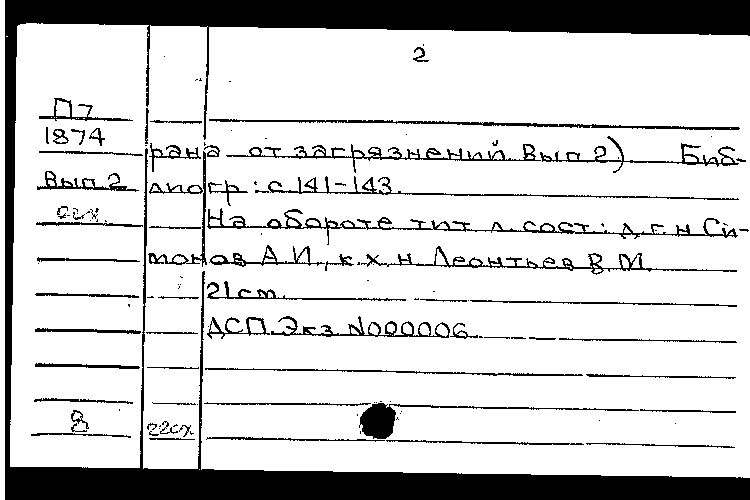 2
П7
1874
рана от загрязнений Вып 2). Биб-
Вып. 2 лиогр: с 141-143.
На обороте тит л. сост: д. г. н Си-
монов А.И., к. х. н. Леонтьев В. М.
21 cm.
ДСП. Экз №000006
8